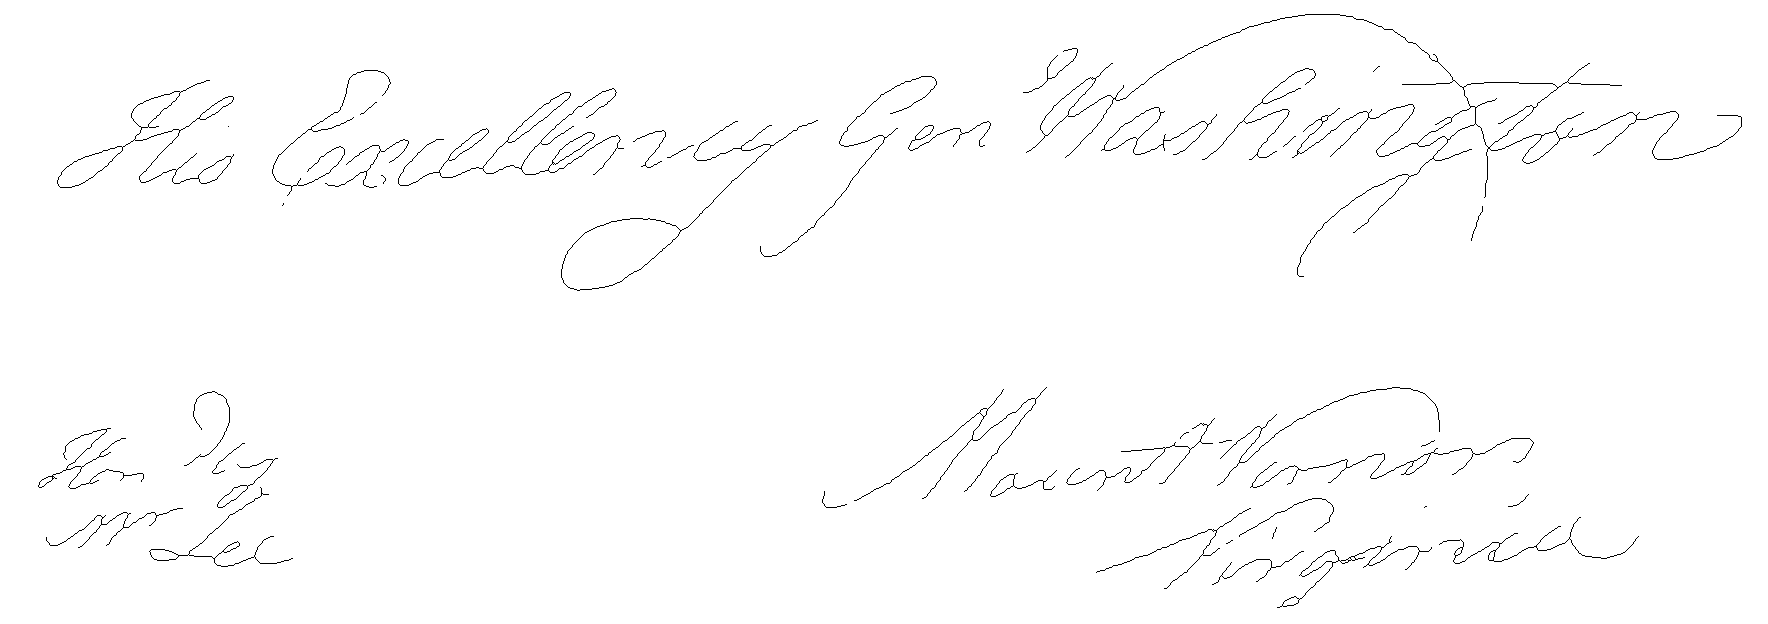 His Excellency Gen Washington
Hon by
Mr Lee
Mount Vernon
Virginia